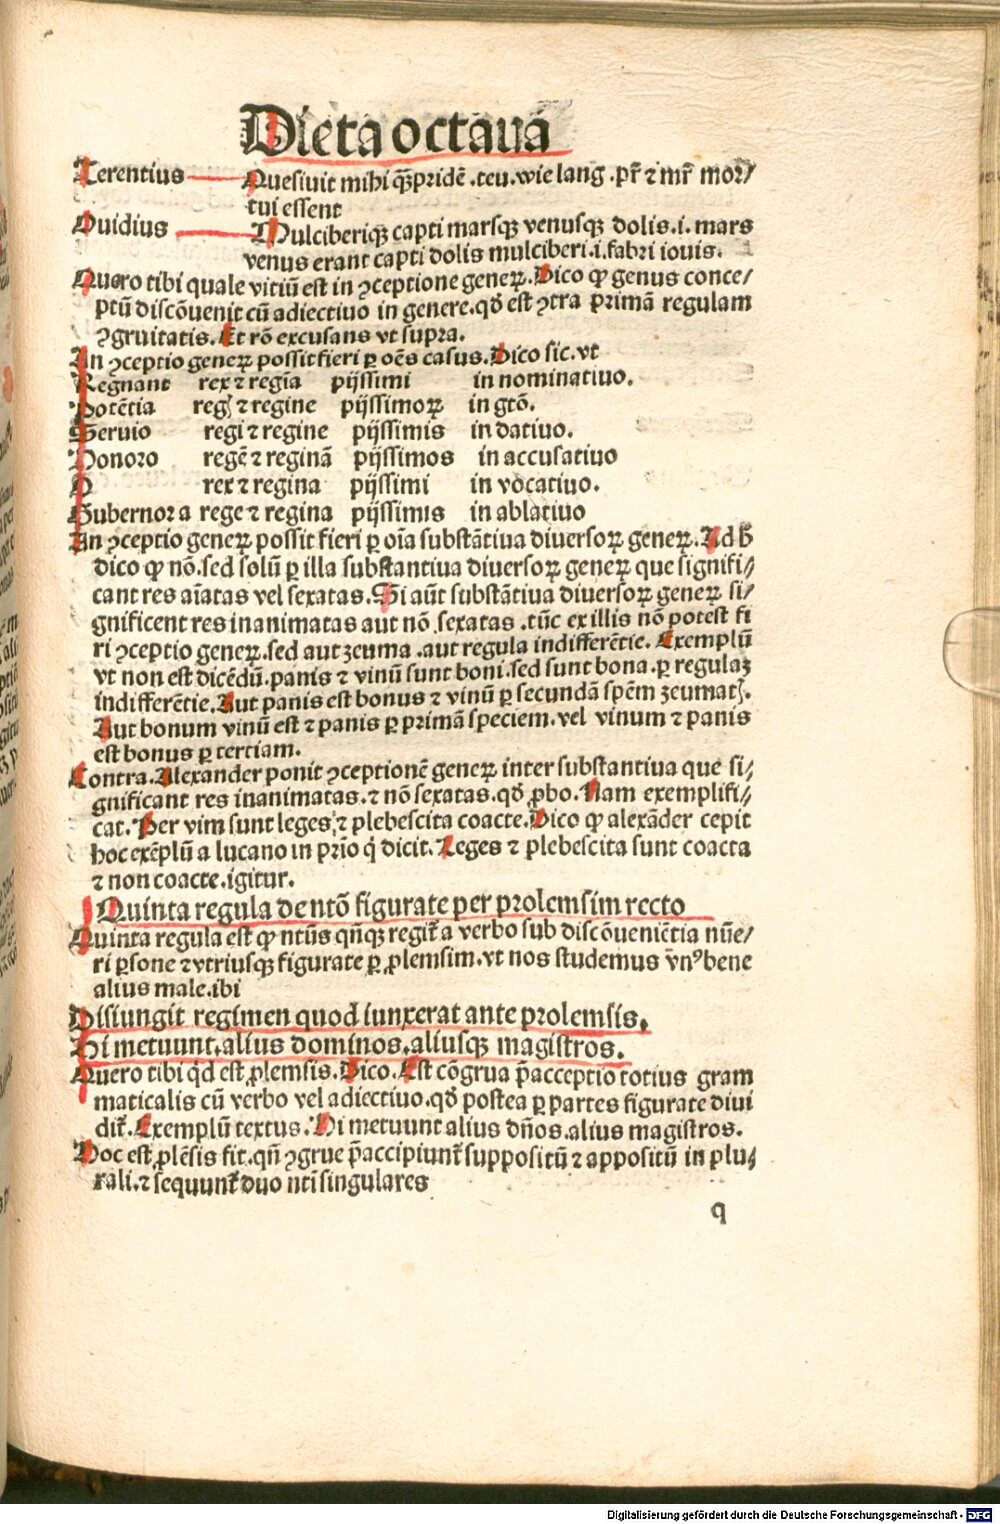 Dieta octaua
Terentius Quesiuit mihi qͣꝫpridē .teu. wie lang .pr̄ ⁊ mr̄ mor⸗
tui essent
Ouidius Mulciberiqꝫ capti marsqꝫ venusqꝫ dolis .i. mars
venus erant capti dolis mulciberi .i. fabri iouis.
Quero tibi quale vitiū est in ꝯceptione generꝝ. Dico ꝙ genus conce⸗
ptū discōuenit cū adiectiuo in genere. qd̄ est ꝯtra primā regulam
ꝯgruitatis. Et rō excusans vt supra.
An ꝯceptio generꝝ possit fieri ꝑ oēs casus. Dico sic. vt
Regnant rex ⁊ regīa pijssimi in nominatiuo.
Potētia regꝭ ⁊ regine pijssimoꝝ in gtō.
Seruio regi ⁊ regine pijssimis in datiuo.
Honoro regē ⁊ reginā pijssimos in accusatiuo
O rex ⁊ regina pijssimi in vocatiuo.
Gubernor a rege ⁊ regina pijssimis in ablatiuo
An ꝯceptio generꝝ possit fieri ꝑ oīa substātiua diuersoꝝ generꝝ. Ad h̄
dico ꝙ nō. sed solū ꝑ illa substantiua diuersoꝝ generꝝ que signifi⸗
cant res aīatas vel sexatas. Si aūt substātiua diuersoꝝ generꝝ si⸗
gnificent res inanimatas aut nō sexatas .tūc ex illis nō potest fi
ri ꝯceptio generꝝ. sed aut zeuma .aut regula indifferētie. Exemplū
vt non est dicēdū. panis ⁊ vinū sunt boni. sed sunt bona. ꝑ regulaꝫ
indifferētie. Aut panis est bonus ⁊ vinū ꝑ secundā spēm zeumatꝭ.
Aut bonum vinū est ⁊ panis ꝑ primā speciem. vel vinum ⁊ panis
est bonus ꝑ tertiam.
Contra. Alexander ponit ꝯceptionē generꝝ inter substantiua que si⸗
gnificant res inanimatas. ⁊ nō sexatas. qd̄ ꝓbo. Nam exemplifi⸗
cat. Per vim sunt leges ⁊ plebescita coacte. Dico ꝙ alexāder cepit
hoc exēplū a lucano in prīo q̇ dicit. Leges ⁊ plebescita sunt coacta
⁊ non coacte. igitur.
Quinta regula de ntō figurate per prolemsim recto
Quinta regula est ꝙ ntūs qn̄qꝫ regit̄ a verbo sub discōueniētia nūe⸗
ri ꝑsone ⁊ vtriusqꝫ figurate ꝑ ꝓlemsim. vt nos studemus vnꝰ bene
alius male. ibi
Disiungit regimen quod iunxerat ante prolemsis.
Hi metuunt. alius dominos. aliusqꝫ magistros.
Quero tibi qd̄ est ꝓlemsis. Dico. Est cōgrua p̄acceptio totius gram
maticalis cū verbo vel adiectiuo. qd̄ postea ꝑ partes figurate diui
dit̄. Exemplū textus. Hi metuunt alius dn̄os. alius magistros.
Hoc est ꝓlēsis fit. qn̄ ꝯgrue p̄accipiunt̄ suppositū ⁊ appositū in plu⸗
rali. ⁊ sequunt̄ duo nti singulares
q
Digitalisierung gefördert durch die Deutsche Forschungsgemeinschaft - DFG